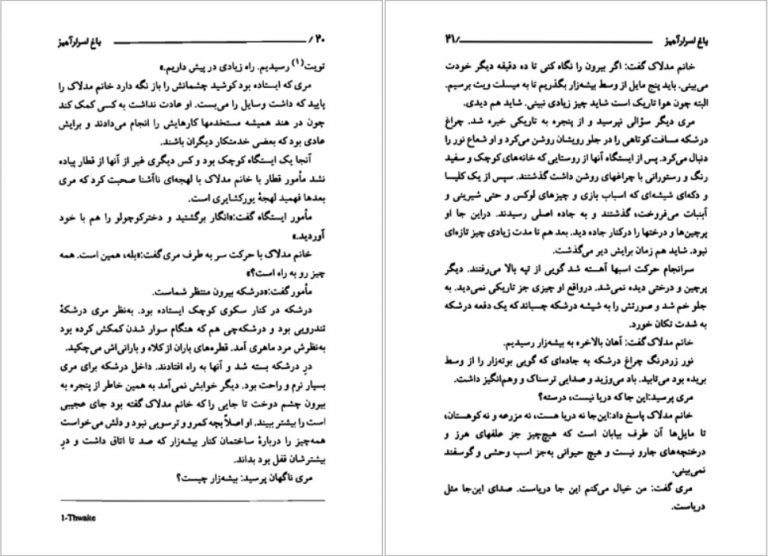 ۲۰/ باغ اسرارآمیز
تویت(۱) رسیدیم. راه زیادی در پیش داریم.»
مری که ایستاده بود کوشید چشمانش را باز نگه دارد خانم مدلاک را
پایید که داشت وسایل را می‌بست. او عادت نداشت به کسی کمک کند
چون در هند همیشه مستخدمها کارهایش را انجام می‌دادند و برایش
عادی بود که بعضی خدمتکار دیگران باشند.
آنجا یک ایستگاه کوچک بود و کس دیگری غیر از آنها از قطار پیاده
نشد مأمور قطار با خانم مدلاک با لهجه‌ای ناآشنا صحبت کرد که مری
بعدها فهمید لهجهٔ یورکشایری است.
مأمور ایستگاه گفت:«انگار برگشتید و دخترکوچولو را هم با خود
آوردید.»
خانم مدلاک با حرکت سر به طرف مری گفت:«بله، همین است. همه
چیز رو به راه است؟»
مأمور گفت:«درشکه بیرون منتظر شماست.
درشکه در کنار سکوی کوچک ایستاده بود. به‌نظر مری درشکهٔ
تندرویی بود و درشکه‌چی هم که هنگام سوار شدن کمکش کرده بود
به‌نظرش مرد ماهری آمد. قطره‌های باران از کلاه و بارانی‌اش می‌چکید.
درِ درشکه بسته شد و آنها به راه افتادند. داخل درشکه برای مری
بسیار نرم و راحت بود. دیگر خوابش نمی‌آمد به همین خاطر از پنجره به
بیرون چشم دوخت تا جایی را که خانم مدلاک گفته بود جای عجیبی
است را بیشتر ببیند. او اصلاً بچه کمرو و ترسویی نبود و دلش می‌خواست
همه‌چیز را دربارهٔ ساختمان کنار بیشه‌زار که صد تا اتاق داشت و درِ
بیشترشان قفل بود بداند.
مری ناگهان پرسید: بیشه‌زار چیست؟
1-Thwake
باغ اسرارآمیز /۲۱
خانم مدلاک گفت: اگر بیرون را نگاه کنی تا ده دقیقه دیگر خودت
می‌بینی. باید پنج مایل از وسط بیشه‌زار بگذریم تا به میسلت ویت برسیم.
البته چون هوا تاریک است شاید چیز زیادی نبینی. شاید هم دیدی.
مری دیگر سؤالی نپرسید و از پنجره به تاریکی خیره شد. چراغ
درشکه مسافت کوتاهی را در جلو رویشان روشن می‌کرد و او شعاع نور را
دنبال می‌کرد. پس از ایستگاه آنها از روستایی که خانه‌های کوچک و سفید
رنگ و رستورانی با چراغهای روشن داشت گذشتند. سپس از یک کلیسا
و دکه‌ای شیشه‌ای که اسباب بازی و چیزهای لوکس و حتی شیرینی و
آبنبات می‌فروخت، گذشتند و به جاده اصلی رسیدند. دراین جا او
پرچین‌ها و درختها را درکنار جاده دید. بعد هم تا مدت زیادی چیز تازه‌ای
نبود. شاید هم زمان برایش دیر می‌گذشت.
سرانجام حرکت اسبها آهسته شد گویی از تپه بالا می‌رفتند. دیگر
پرچین و درختی دیده نمی‌شد. درواقع او چیزی جز تاریکی نمی‌دید. به
جلو خم شد و صورتش را به شیشه درشکه چسباند که یک دفعه درشکه
به شدت تکان خورد.
خانم مدلاک گفت: آهان بالاخره به بیشه‌زار رسیدیم.
نور زردرنگ چراغ درشکه به جاده‌ای که گویی بوته‌زار را از وسط
بریده بود می‌تابید. باد می‌وزید و صدایی ترسناک و وهم‌انگیز داشت.
مری پرسید:این جا که دریا نیست، درسته؟
خانم مدلاک پاسخ داد:این‌جا نه دریا هست، نه مزرعه و نه کوهستان،
تا مایل‌ها آن طرف بیابان است که هیچ‌چیز جز علفهای هرز و
درختچه‌های جارو نیست و هیچ حیوانی به‌جز اسب وحشی و گوسفند
نمی‌بینی.
مری گفت: من خیال می‌کنم این جا دریاست. صدای این‌جا مثل
دریاست.